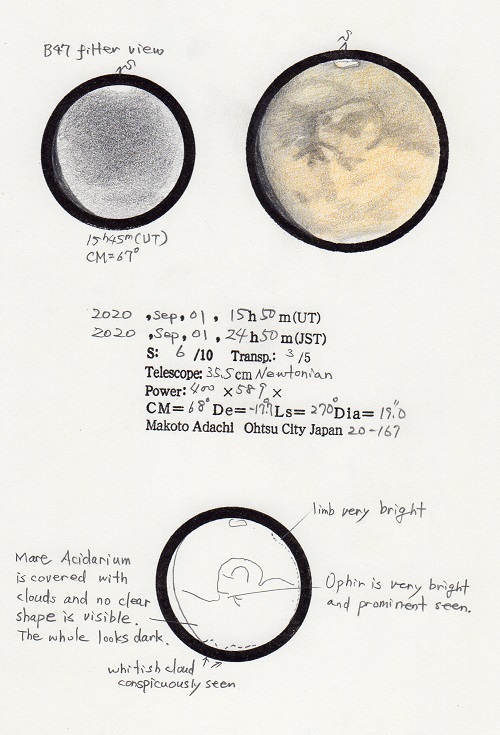 B47 filter view
S
S
15h45m(UT)
CM=67°
2020 ,Sep,01, 15h50m(UT)
2020 ,Sep,01, 24h50m(JST)
S: 6 /10 Transp.: 3 /5
Telescope: 35.5cm Newtonian
Power: 400 ×589 ×
CM= 68° De= -17.7° Ls= 270° Dia= 19.0"
Makoto Adachi Ohtsu City Japan 20-167
limb very bright
Mare Acidarium
is covered with
clouds and no clear
shape is visible.
The whole looks dark.
Ophir is very bright
and prominent seen.
whitish cloud
conspicuously seen